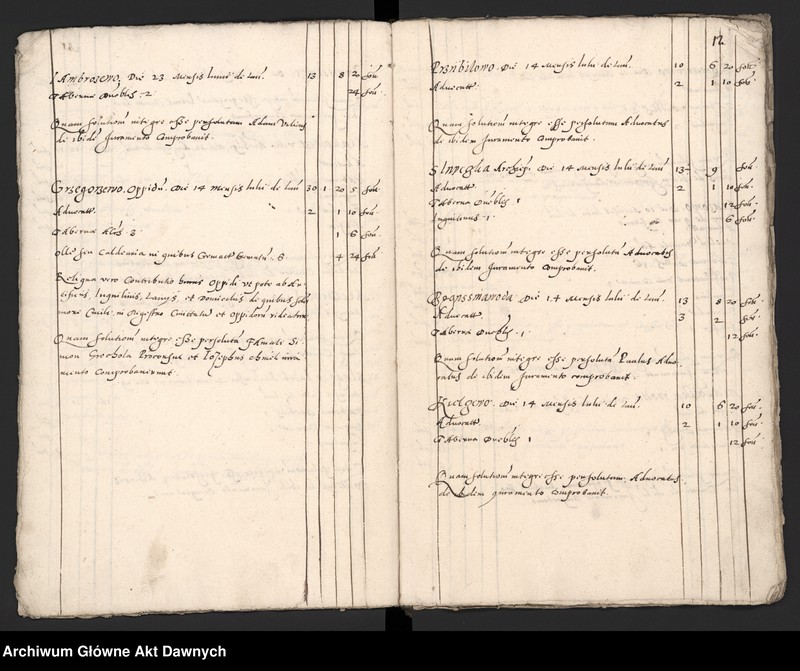 Ambrozewo. Die 23 Mensis Iunii de Lan. 13 8 20 sol.
Taberna Duobus 2 24 sol.
Quam solutionem integre esse persolutam Adam
de ibidem Iuramento Comprobavit.
Grzegorzewo. Oppidum. Die 14 Mensis Iulii de Lan. 30 1 20 5 sol.
Advocatt. 2 1 10 sol.
Taberna 3 1 6 sol.
Olle seu Caldearia in quibus Cremat. 6 4 24 sol.
Reliqua vero Contributio Oppidi utpote ab Ar-
tificus, Inquilinis, Laneis, et Domiciliis de quibus fol.
in Regestro Civitatum et Oppidorum videatur.
Quam solutionem integre esse persolutam Si-
mon Grochola Proconsul et Iosephus Iura-
mento Comprobaverunt.
12
Przibilowo. Die 14 Mensis Iulii de Lan. 10 6 20 sol.
Advocatt. 2 1 10 sol.
Quam solutionem integre esse persolutam Advocatus
de ibidem Iuramento Comprobavit.
Archiep. Die 14 Mensis Iulii de Lan. 13 9 sol.
Advocatt. 2 1 10 sol.
Taberna Duobus 1 12 sol.
Inquilinus 1 6 sol.
Quam solutionem integre esse persolutam Advocatus
de ibidem Iuramento Comprobavit.
Die 14 Mensis Iulii de Lan. 13 8 20 sol.
Advocatt. 3 2 sol.
Taberna Duobus 1 12 sol.
Quam solutionem integre esse persolutam Paulus Advo-
catus de ibidem Iuramento comprobavit.
Die 14 Mensis Iulii de Lan. 10 6 20 sol.
Advocatt. 2 1 10 sol.
Taberna Duobus 1 12 sol.
Quam solutionem integre esse persolutam Advocatus
de ibidem Iuramento Comprobavit.
Archiwum Główne Akt Dawnych